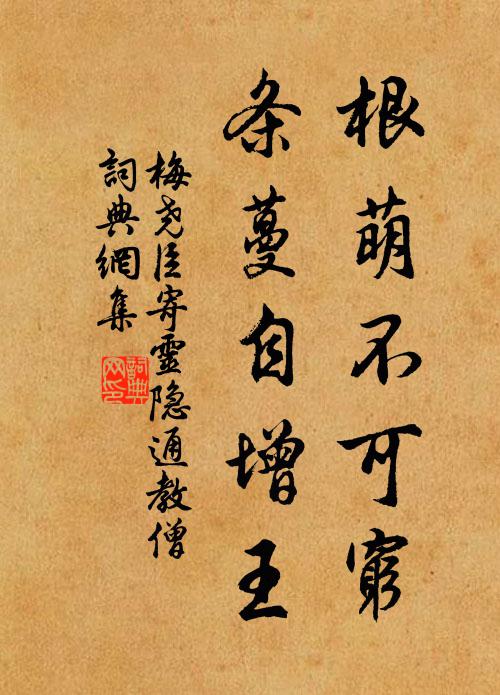 根萌不可窮
条蔓自增王
梅尭臣寄靈隐通教僧
詞典網集
詞典网印